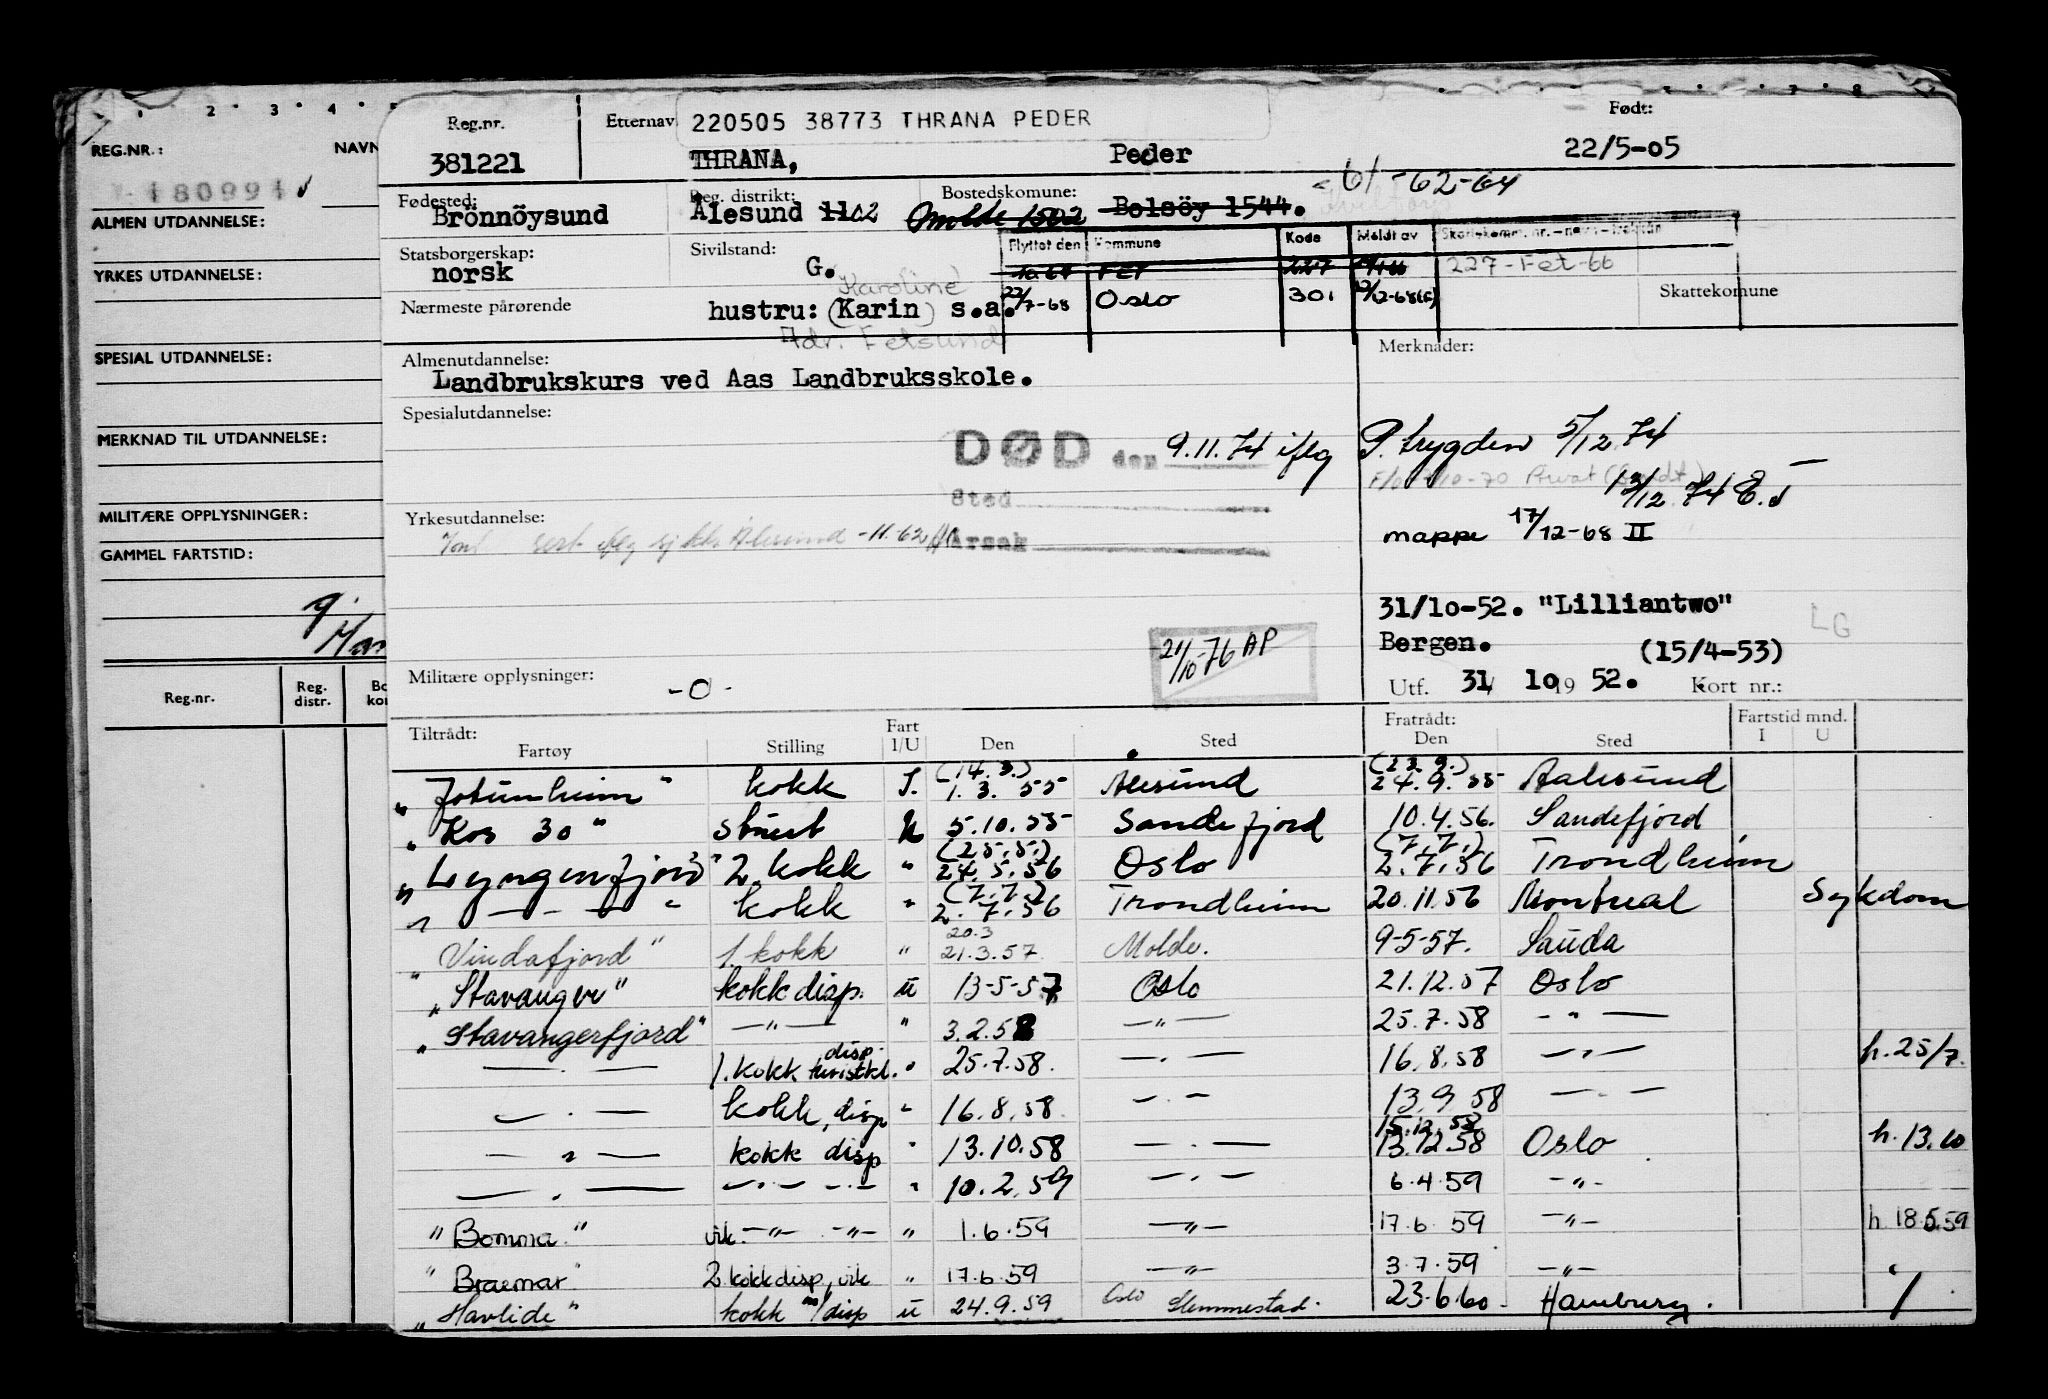 1 2 3 4
REG.NR.: NAVN
180991
ALMEN UTDANNELSE:
YRKES UTDANNELSE:
SPESIAL UTDANNELSE:
MERKNAD TIL UTDANNELSE:
MILITÆRE OPPLYSNINGER:
GAMMEL FARTSTID:
Reg.nr. Reg. distr. Bo kor
Reg.nr. Etternav 220505 38773 THRANA PEDER Født:
381221 THRANA, Peder 22/5-05
Fødested: Reg. distrikt: Bostedskomune: 61-62-64
Brönnöysund Ålesund 1102 Molde 1502 Bolsöy 1544.
Statsborgerskap: Sivilstand: Flyttet den Kommune Kode Meldt av
norsk G. FET 227 227-Fet-66
Karoline
Nærmeste pårørende hustru: (Karin) s.a. 22/7-68 Oslo 301 12/12-68 Skattekomune
Adr. Fetsund
Almenutdannelse: Merknader:
Landbrukskurs ved Aas Landbruksskole.
Spesialutdannelse:
DØD den 9.11.74 iflg P. trygden 5/12 74
Sted 13/12 74 E.J
Yrkesutdannelse: mappe 17/12-68 II
Årsak
31/10-52. "Lilliantwo" LG
Bergen. (15/4-53)
21/10-76 AP
Militære opplysninger: -0- Utf. 31/ 10 19 52. Kort nr.:
Tiltrådt: Fart Fratrådt: Fartstid mnd.
Fartøy Stilling I/U Den Sted Den Sted I U
(14.3.) (23.9.)
"Jotunheim" kokk I. 1.3.55 Alesund 24.9.55 Aalesund
"Kos 30" stuert U 5.10.55 Sandefjord 10.4.56. Sandefjord
(25.5.) (7.7.)
"Lyngenfjord" 2. kokk " 24.5.56 Oslo 2.7.56 Trondheim
(7.7.)
" — - — " kokk " 2.7.56 Trondheim 20.11.56 Montreal Sykdom
20.3
"Vindafjord" 1. kokk " 21.3.57 Molde. 9-5-57. Sauda
"Stavanger" kokk disp. u 13-5-57 Oslo 21.12.57 Oslo
"Stavangerfjord" —"— " 3.2.58 —"— 25.7.58 -"—
— . — 1. kokk disp. turistkl. " 25.7.58. — . — 16.8.58 —"— h. 25/7.
— . — kokk, disp " 16.8.58. — " — 13.9.58 — " —
15.12.58
— " — kokk disp " 13.10.58 — . — 13.12.58 Oslo h. 13.10
— . — —.— —.— " 10.2.59 —"— 6.4.59 —"—
"Bomma" vik. —"— —"— " 1.6.59 —"— 17.6.59 —"— h. 18.5.59
"Braemar" 2 kokk disp, vik " 17.6.59 —"— 3.7.59 —"—
"Havlide" kokk m/disp u 24.9.59 Oslo Slemmestad. 23.6.60. Hamburg.